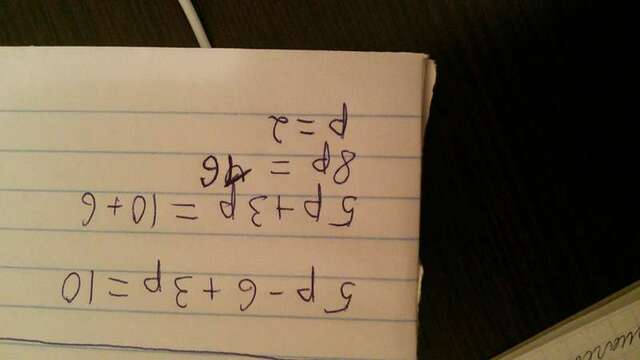 5p-6+3p=10
5p+3p=10+6
8p=16
p=2